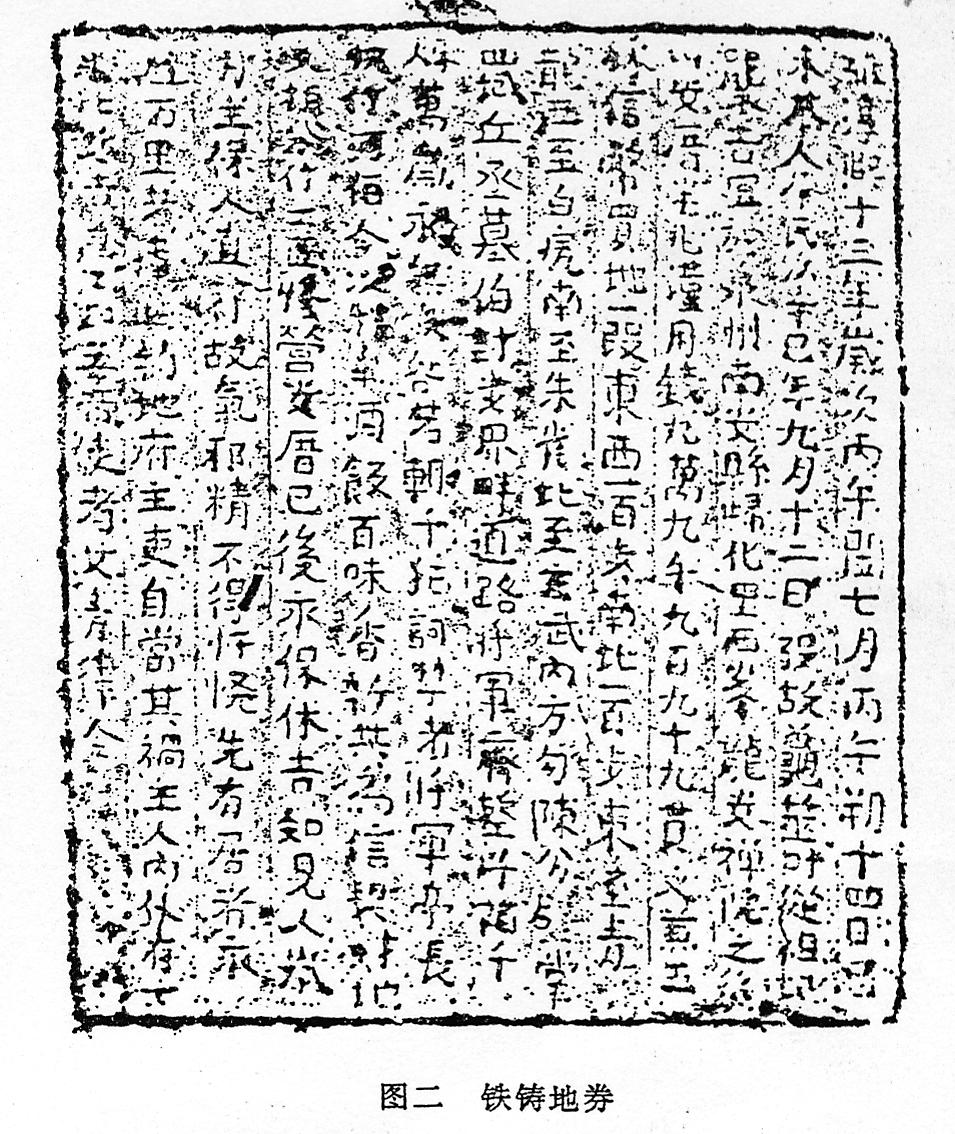 淳熙十三年歲次丙午七月丙午朔十四日己
未人氏以辛巳年九月十二日殁故龜筮叶從相地
襲吉宜於州南安縣歸化里西峯龍安禪院之
山安厝宅兆謹用錢九萬九千九百九十九貫文兼五
綵信幣買地一段東西一百步南北一百步東至青
龍西至白虎南至朱雀北至玄武內方勾陳分擘掌
四域丘丞墓伯封步界畔道路將軍齊整阡陌千
秋萬歲永無殃咎若輒干犯訶禁者將軍亭長
付河伯今以牲牢酒飯百味香新共為信契財地
交相分付工匠修營安厝已後永保休吉知見人歲
月主保人直符故氣邪精不得忏恡先有居者永
避万里若違此約地府主吏自當其禍主人內外存亡
五帝使者女青律令
图二 铁铸地券